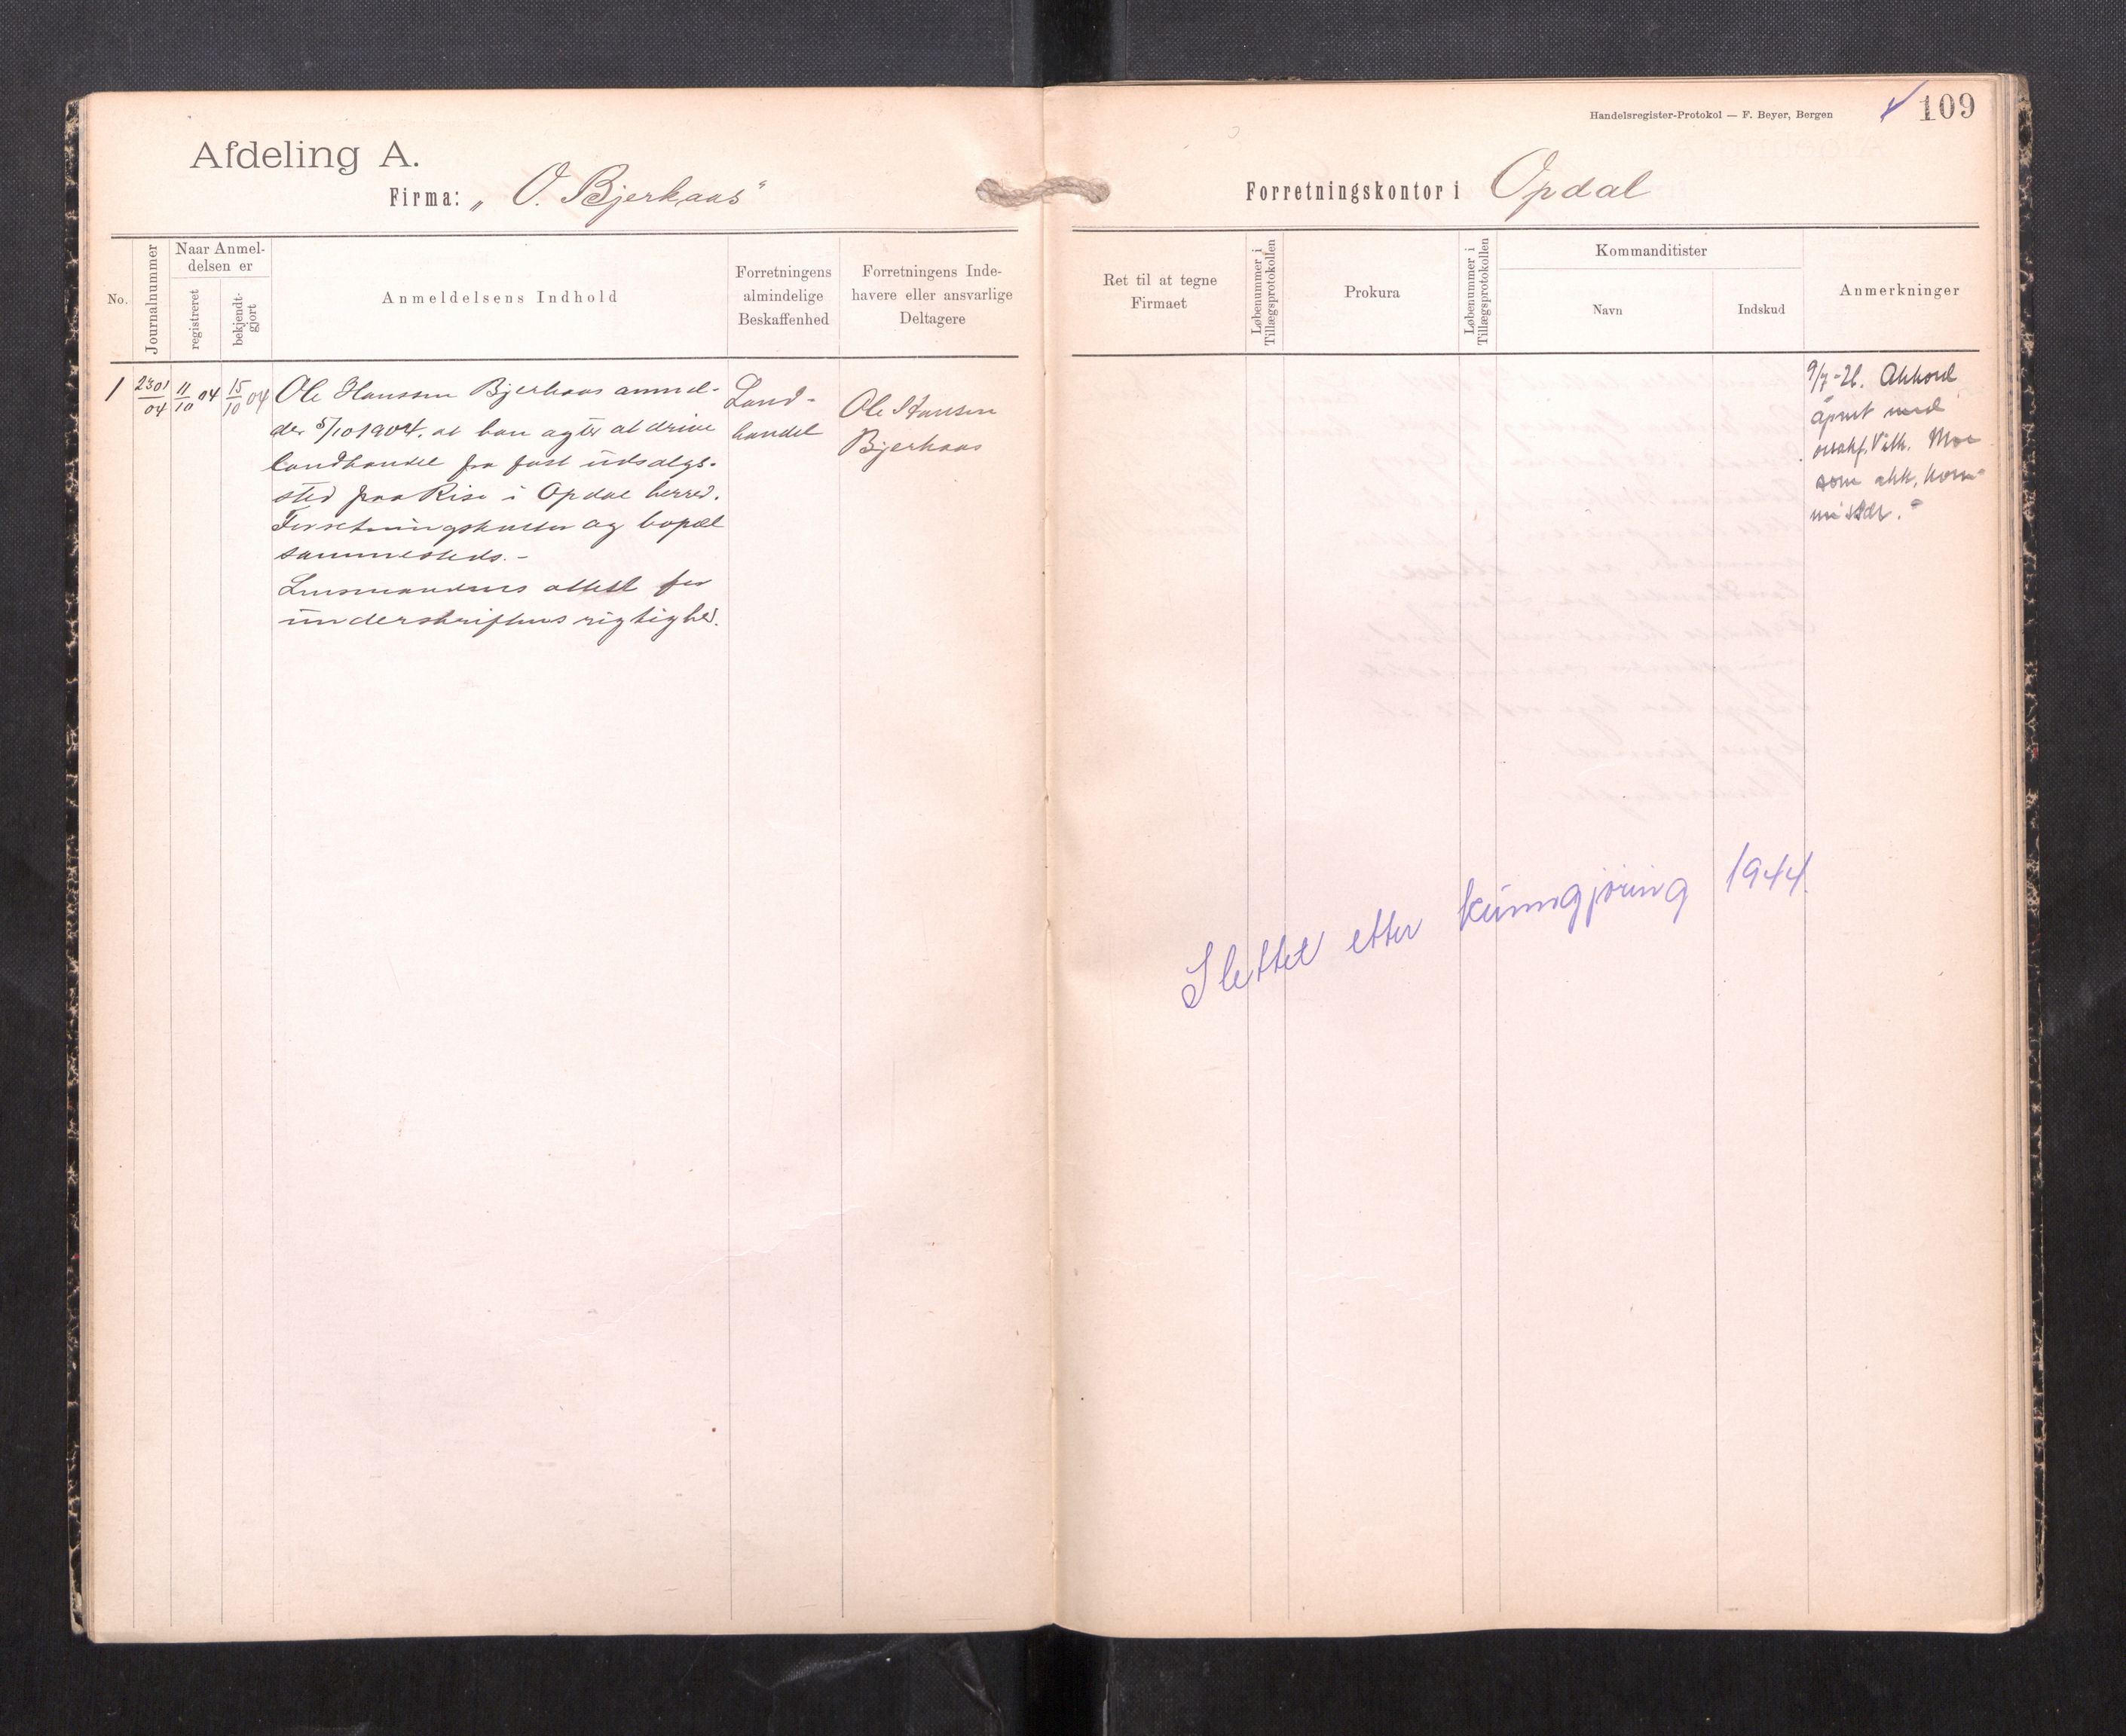 Afdeling A.
Firma: „ O. Bjerkaas"
No.
Journalnummer
Naar Anmel-
delsen er
registreret
bekjendt-
gjort
Anmeldelsens Indhold
Forretningens
almindelige
Beskaffenhed
Forretningens Inde-
havere eller ansvarlige
Deltagere
1
2301/04
11/10 04
15/10 04
Ole Hanssen Bjerkaas anmel-
der 5/10 1904. at han agter at drive
landhandel fra fast udsalgs-
sted paa Rise i Opdal herred.
Forretningskontor og bopæl
sammesteds. -
Lensmandens attest for
underskriftens rigtighed.
Land-
handel
Ole Hansen
Bjerkaas
Handelsregister-Protokol — F. Beyer, Bergen
109
Forretningskontor i Opdal
Ret til at tegne
Firmaet
Løbenummer i
Tillægsprotokollen
Prokura
Løbenummer i
Tillægsprotokollen
Kommanditister
Navn
Indskud
Anmerkninger
9/7-26. Akkord
åpnet med
orsakf. Vilh. Moe
som akk. kom-
missær.
Slettet etter kunngjøring 1944.